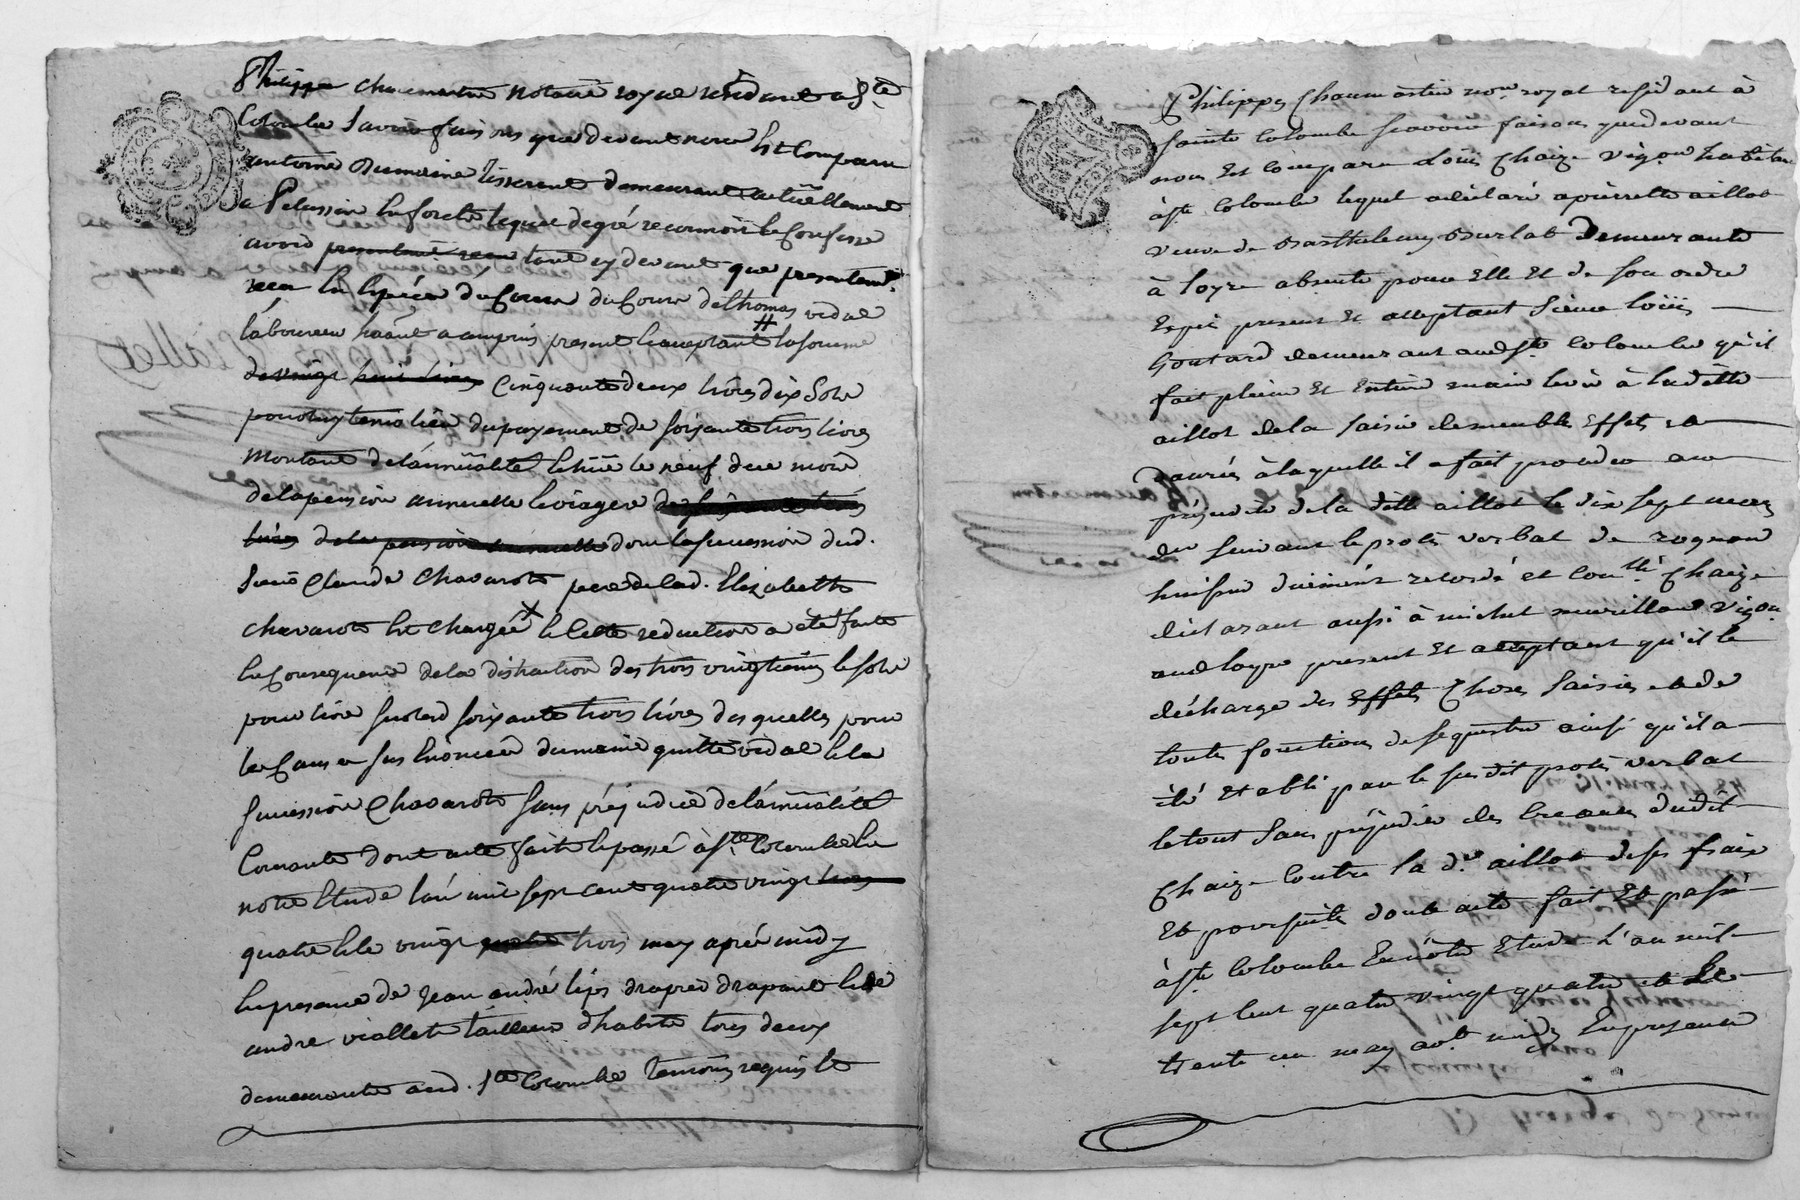 Philippe Chaumartin notaire royal residant a Ste
Colombe Savoir faisons que par devant nous Est Comparu
antoine Dumaine tisserent demeurant actuellement
a Pelussin la forest lequel de gré reconnoit et Confesse
avoir presentement receu tant cy devant que presentemt
receu en especes du Cours du Cours de thomas vidal
laboureur haant a ampuis present et acceptant # la somme
de vingt huit livres Cinquante deux livres dix Sols
pour luy tenir lieu du payement de soixante trois livres
montant de l'annualité echüe le neuf du mois
de la pension annuelle et viagere de soixante trois
livres de la pension annuelle dont la succession dud.
Sieur Claude Chavarot pere de lad. Elizabeth
chavarot Est Chargée x et Cette reduction a eté faite
en Consequence de la distraction des trois vingtiemes et sols
pour livre sur lesd soixante trois livres desquelles pour
les Causes sus enoncées dumaine quitte vidal et la
succession Chavarot sans préjudice de l'annualité
Courante dont acte fait et passé à Ste Colombe En
notre Etude l'an mil sept cent quatre vingt trois
quatre et le vingt quatre trois may après midy
En presence de jean andré drapant et de
andre viallet tailleur d'habits tous deux
demeurants aud. Ste Colombe temoins requis et
Philippes Chaumartin nore royal residant à
sainte Colombe scavoir faisons que devant
nous Est comparu Loüis Chaize vigon habitant
à ste Colombe lequel a déclaré a pierrette aillot
veuve de Barthelemy Burlat Demeurante
à loyre absente pour Elle Et de son ordre
Expès present Et acceptant Sieur loüis
Goutard demeurant aud ste Colombe qu'il
fait pleine Et Entiere main levée à la ditte
aillot de la saisie des meubles Effets et
danrées à laquelle il a fait proceder au
préjudice de la ditte aillot le dix sept mars
dr suivant le procès verbal de
huissier duëment et Chaize
déclarant aussi à michel vigon
aud loyre present Et acceptant qu'il le
décharge des Effets Choses saisies et de
toute fonctions de sequestre ainsi qu'il a
été Etabli par le susdit procès verbal
le tout sans préjudice des creances dudit
Chaize Contre la de aillot de ses fraix
Et poursuite dont acte fait Et passé
à ste Colombe En nôtre Etude L'an mil
sept Cent quatre vingt quatre et le
trente un may avt midy En presence